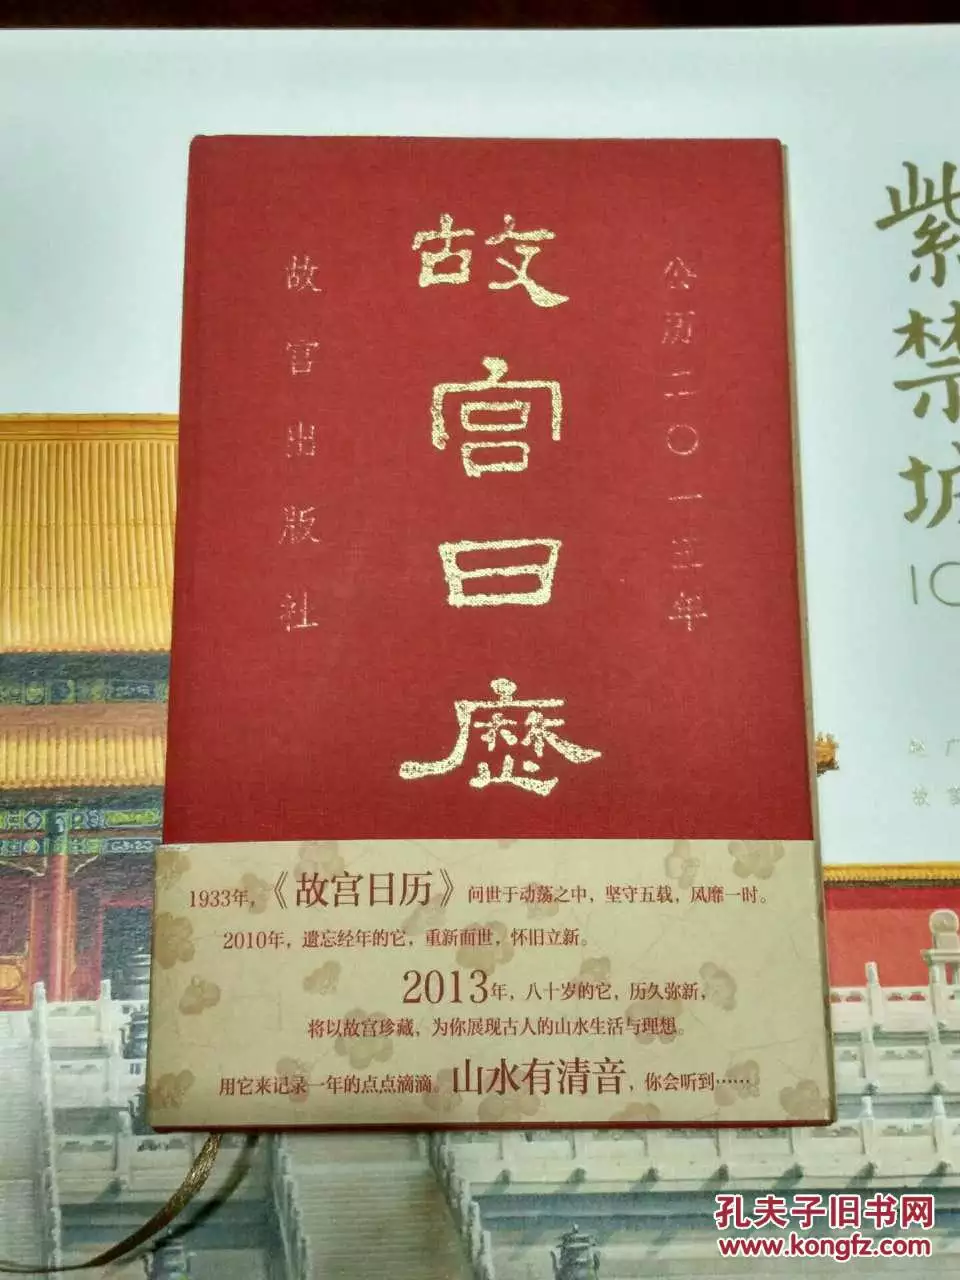 故宫日历
公历二〇一三年
故宫出版社
1933年，《故宫日历》问世于动荡之中，坚守五载，风靡一时。
2010年，遗忘经年的它，重新面世，怀旧立新。
2013年，八十岁的它，历久弥新，
将以故宫珍藏，为你展现古人的山水生活与理想。
用它来记录一年的点点滴滴。山水有清音，你会听到……
紫禁城
10
故
孔夫子旧书网
www.kongfz.com